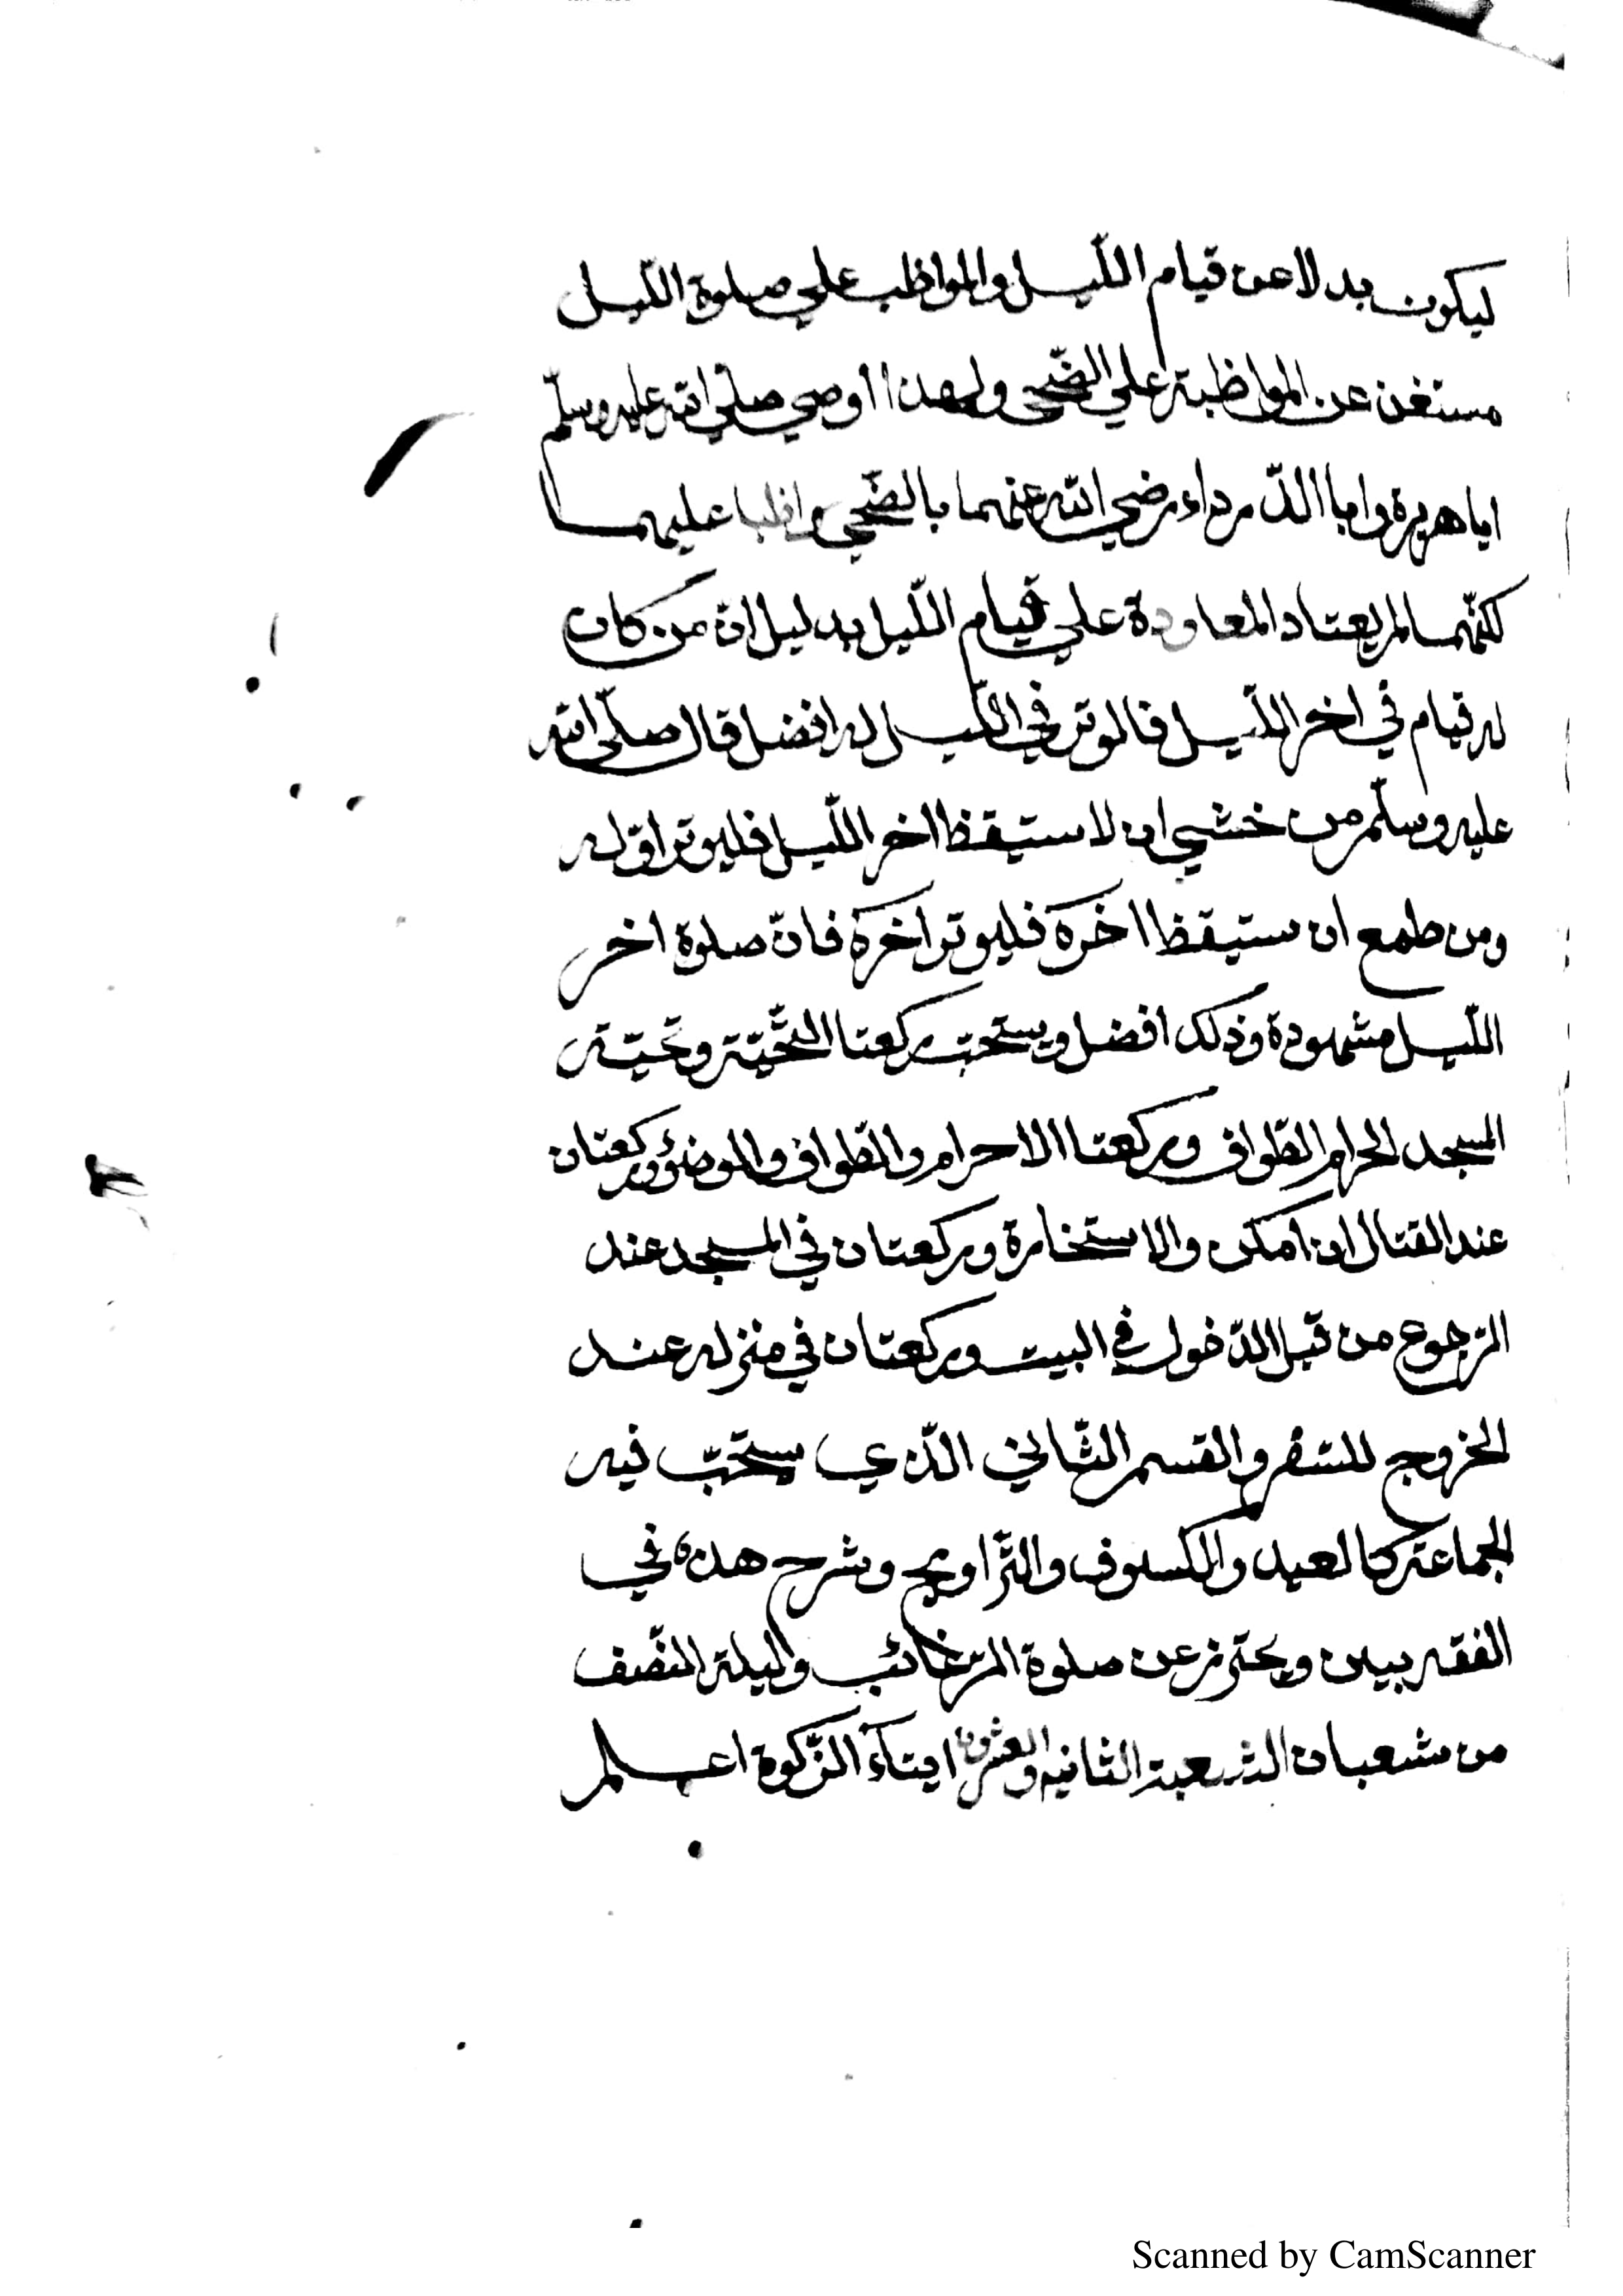 ليكون بدلا عن قيام اللّيل والمواظب علي صلوة اللّيل
مستغن عن المواظبة علي الضّحى ولهذا اوصي صلّي الله عليه وسلّم
ابا هريرة وابا الدّرداء رضي الله عنهما بالضّحي واظبا عليهما
لكنّهما لم يعتاد المعاودة علي قيام اللّيل بدليل انّ من كان
له قيام في اخر اللّيل فالوتر في اللّيل له افضل قال صلّى الله
عليه وسلّم من خشي ان لا ستيقظ اخر اللّيل فليوتر اوّله
ومن طمع ان ستيقظ اخره فليوتر اخره فانّ صلوة اخر
اللّيل مشهودة وذلك افضل ويستحبّ ركعتا التّحيّة وتحيّة
المسجد الحرام الطّواف وركعتا الاحرام والطّواف والوضوء وركعتان
عند القتال ان امكن والاستخارة وركعتان في المسجد عند
الرّجوع من قبل الدّخول في البيت وركعتان في منزله عند
الخروج للسّفر والقسم الثّاني الّذي يستحبّ فيه
الجماعة كالعيد والكسوف والتّراويح وشرح هذه في
الفقه بيين ويحترز عن صلوة الرّغائب وليلة النّصف
من شعبان الشعبة الثانيه والعشرون ايتآء الزّكوة اعلم
Scanned by CamScanner